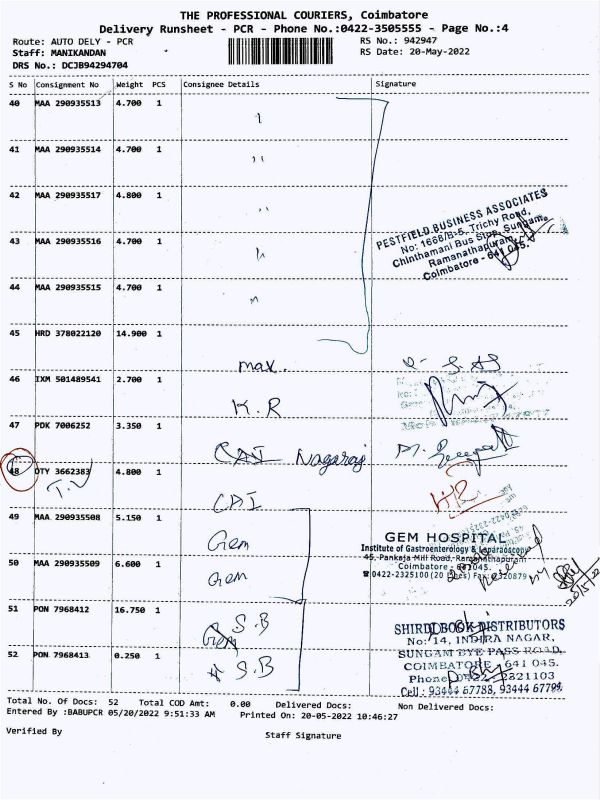 THE PROFESSIONAL COURIERS, Coimbatore
Delivery Runsheet - PCR - Phone No.:0422-3505555 - Page No.:4
Route: AUTO DELY - PCR RS No.: 942947
Staff: MANIKANDAN RS Date: 20-May-2022
DRS No.: DCJB94294704
S No Consignment No Weight PCS Consignee Details Signature
40 MAA 290935513 4.700 1
41 MAA 290935514 4.700 1 ''
42 MAA 290935517 4.800 1 ''
PESTFIELD BUSINESS ASSOCIATES
No: 1668/B-5, Trichy Road,
Chinthamani Bus Stop, Sungam,
Ramanathapuram,
Coimbatore - 641 045.
43 MAA 290935516 4.700 1
44 MAA 290935515 4.700 1
45 HRD 378022120 14.900 1
max.
46 IXM 501489541 2.700 1
K.R
47 PDK 7006252 3.350 1
CAI Nagaraj
48 OTY 3662383 4.800 1
T.V
CAI
49 MAA 290935508 5.150 1
Gem
GEM HOSPITAL
Institute of Gastroenterology & Laparoscopy
45, Pankaja Mill Road, Ramanathapuram
Coimbatore - 641045.
50 MAA 290935509 6.600 1
Gem
51 PON 7968412 16.750 1
S.B
SHIRDI BOOK DISTRIBUTORS
No: 14, INDIRA NAGAR,
SUNGAM BYE PASS ROAD,
COIMBATORE - 641 045.
Phone: 0422 - 2321103
Cell: 93444 67788, 93444 67799
52 PON 7968413 0.250 1
S.B
Total No. Of Docs: 52 Total COD Amt: 0.00 Delivered Docs: Non Delivered Docs:
Entered By :BABUPCR 05/20/2022 9:51:33 AM Printed On: 20-05-2022 10:46:27
Verified By Staff Signature